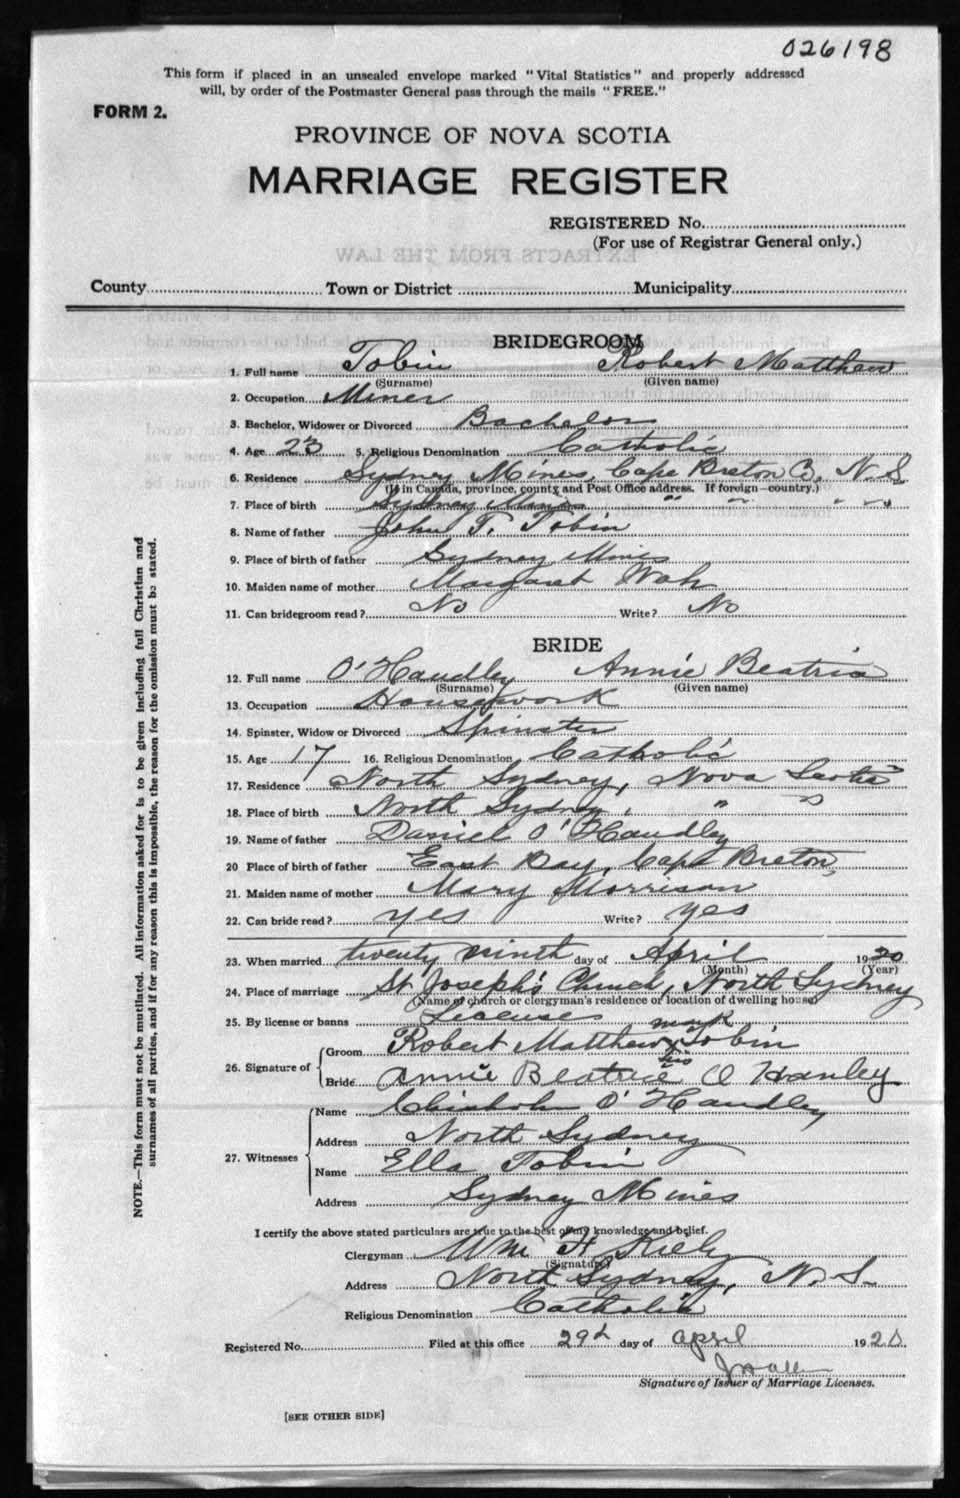 026198
This form if placed in an unsealed envelope marked "Vital Statistics" and properly addressed
will, by order of the Postmaster General pass through the mails "FREE."
FORM 2.
PROVINCE OF NOVA SCOTIA
MARRIAGE REGISTER
REGISTERED No.
(For use of Registrar General only.)
EXTRACTS FROM THE LAW
County Town or District Municipality
BRIDEGROOM
1. Full name Tobin Robert Matthew
(Surname) (Given name)
2. Occupation Miner
3. Bachelor, Widower or Divorced Bachelor
4. Age 23 5. Religious Denomination Catholic
6. Residence Sydney Mines, Cape Breton Co, N.S.
(If in Canada, province, county and Post Office address. If foreign—country.)
7. Place of birth Sydney Mines " " " "
8. Name of father John T. Tobin
9. Place of birth of father Sydney Mines
10. Maiden name of mother Margaret
11. Can bridegroom read? No Write? No
BRIDE
12. Full name O'Handley Annie Beatrice
(Surname) (Given name)
13. Occupation Housework
14. Spinster, Widow or Divorced Spinster
15. Age 17 16. Religious Denomination Catholic
17. Residence North Sydney, Nova Scotia
18. Place of birth North Sydney, " "
19. Name of father Daniel O'Handley
20 Place of birth of father East Bay, Cape Breton,
21. Maiden name of mother Mary Morrison
22. Can bride read? yes Write? yes
23. When married twenty ninth day of April 1920
(Month) (Year)
24. Place of marriage St Joseph's Church, North Sydney
(Name of church or clergyman's residence or location of dwelling house)
25. By license or banns License
26. Signature of Groom Robert Matthew his X mark Tobin
Bride Annie Beatrice O Hanley
27. Witnesses Name Chisholm O'Handley
Address North Sydney
Name Ella Tobin
Address Sydney Mines
I certify the above stated particulars are true to the best of my knowledge and belief.
Clergyman Wm H Kiely
(Signature)
Address North Sydney, N.S.
Religious Denomination Catholic
Registered No. Filed at this office 29th day of april 1920
Signature of Issuer of Marriage Licenses.
[SEE OTHER SIDE]
NOTE.—This form must not be mutilated. All information asked for is to be given including full Christian and
surnames of all parties, and if for any reason this is impossible, the reason for the omission must be stated.